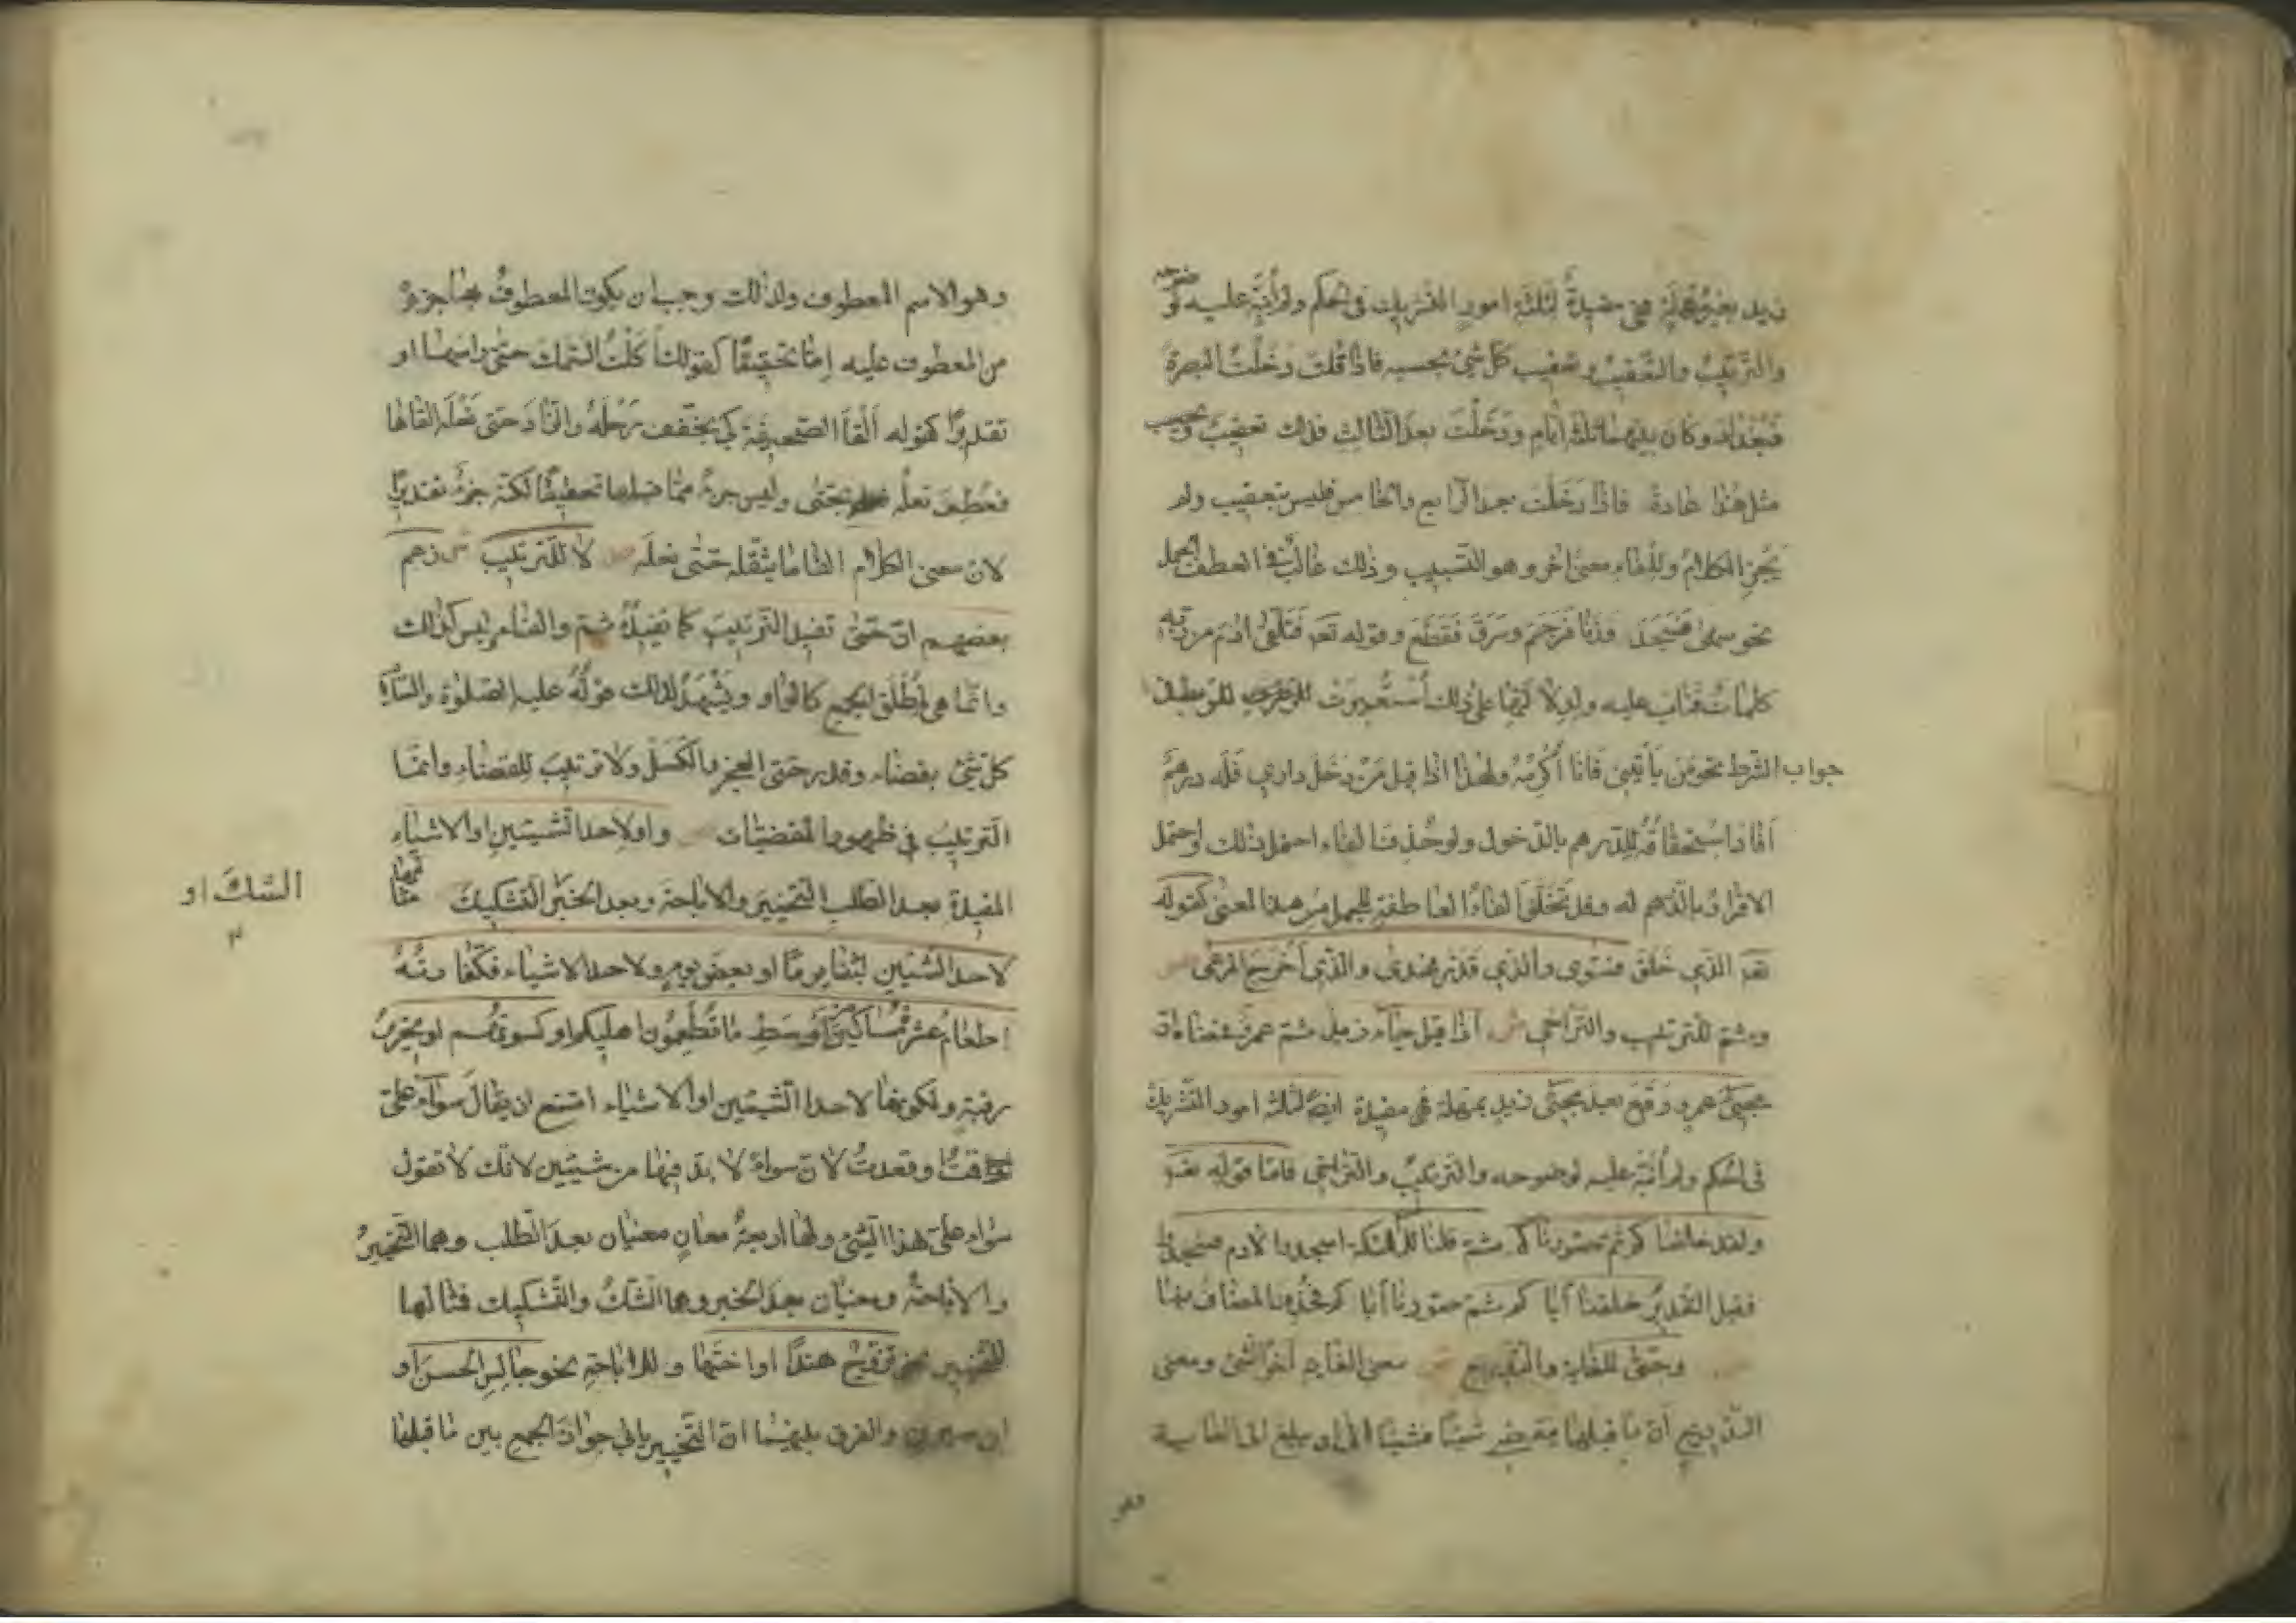 زيد بغير مهلة فهي مفيدة لثلثة امور التشريك في الحكم ولم أنبّه عليه لوضوحه
والتَّرتيبُ والتعقيبُ وتعقيب كل شيء بحسبه فاذا قلت دخلتُ البصرةَ
فبغداد وكان بينهما ثلثة أيام ودَخَلْتَ بعد الثالث فذلك تعقيبٌ
مثل هذا عادة فاذا دَخَلْتَ بعد الرابع والخامس فليس بتعقيب ولم
يَجُز الكلامُ وللفاء معنى اخر وهو التسبيب وذلك غالبٌ في العطف الجمل
نحو سهى فَسَجَدَ وزنا فَرُجِمَ وسَرَقَ فَقُطِعَ وقوله تعـ فَتَلَقّى آدَمَ من ربّه
كلماتٌ فتاب عليه ولدلالَتِها على ذلك أُسْتُعيرَتْ للربط في
جواب الشرط نحو مَن يَأتيني فانا أُكْرِمُه ولهذا اذا قيل مَنْ دَخَلَ داري فَلَه درهمٌ
أفاد اسْتِحقاقَه للدرهم بالدّخول ولو حُذف الفاء احتمل ذلك واحتمل
الاقرارُ بالدّرهم له وقد تَخَلُّوا الفاءُ العاطفة للجمل من هذا المعنى كقوله
تعـ الذي خَلَقَ فسَوّى والذي قدّر فهدى والذي أخرج المرعى ص
وثمّ للترتيب والتراخي ش اذا قيل جاء زيد ثم عمرو فمعناه انّ
مجيئ عمرو وَقَعَ بعد مَجيَّى زيد بمهلة فهي مفيدة ايضا لثلثة امور التشريك
في الحكم ولم أنبّه عليه لوضوحه والتّرتيبُ والتراخي فامّا قوله تعـ
ولقد خلقناكم ثم صورناكم ثم قلنا للملائكة اسجدوا لآدم فسجدوا
فقيل التقديرُ خلقنا أبا كم ثم صورنا أبا كم فحُذف المضاف منهما
وحتّى للغاية والتّدريج ش معنى الغاية آخرُ الشيء ومعنى
التّدريج أنّ ما قبلها ينقضي شيئا فشيئا الى ان يبلغ الى الغاية
وهو
وهو الاسم المعطوف ولذلك وجب ان يكون المعطوفُ بها جزءً
من المعطوف عليه إمّا تحقيقًا كقولك أَكَلْتُ السّمكَ حتّى راسَها او
تقديرًا كقوله ألقَا الصّحيفَةَ كي يُخَفِّفَ رَحْلَهُ والزّادَ حتى نَعْلَه القاها
فعُطِفَ نعلُه بحتّى وليس جزءً ممّا قبلها تحقيقًا لكنّه جزءٌ تقديرًا
لان معنى الكلام القا ما يثقّله حتّى نعلَه ص لا للتّرتيب ش زعم
بعضهم انّ حتّى تفيد التّرتيبَ كما تفيدُه ثم والفاء وليس كذلك
وانّما هي لمُطلَق الجمع كالواو ويَشْهَدُ لذلك قولُه عليه الصّلوة والسّلام
كل شيءٍ بقضاء وقدر حتى العجز والكَسَلُ ولا ترتيب للقضاء وانّما
التّرتيبُ في ظهور المقضيّات ص واو لاحد الشيئين او الاشياء
المفيدةِ بعد الطلب التخيير والاباحةَ وبعد الخبر التشكيكَ مثالها
الشكّ او
لاحد الشيئين لبثنا يومًا او بعض يوم ولاحد الاشياء فكفّارته
إطعامُ عَشَرَة مساكين من أوسَط ما تُطْعِمُون اهليكم او كسوتُهُم او تحريرُ
رقبة ولكونها لاحد الشّيئين او الاشياء امتنع ان يقالَ سواءٌ عليّ
أقمتَ او قعدتَ لانّ سواءً لا بدّ فيها من شيئين لانّك لا تقول
سواء عليّ هذا الشّيئ ولها اربعةُ معانٍ معنيان بعد الطلب وهما التّخييرُ
والاباحةُ ومعنيان بعد الخبر وهما الشّكُّ والتّشكيك فمثالها
للتّخيير نحو تزوّج هندًا او اختَها وللاباحةِ نحو جالِسِ الحسنَ او
ابن سيرين والفرق بينهما انّ التّخيير يابى جوازَ الجمع بين ما قبلها